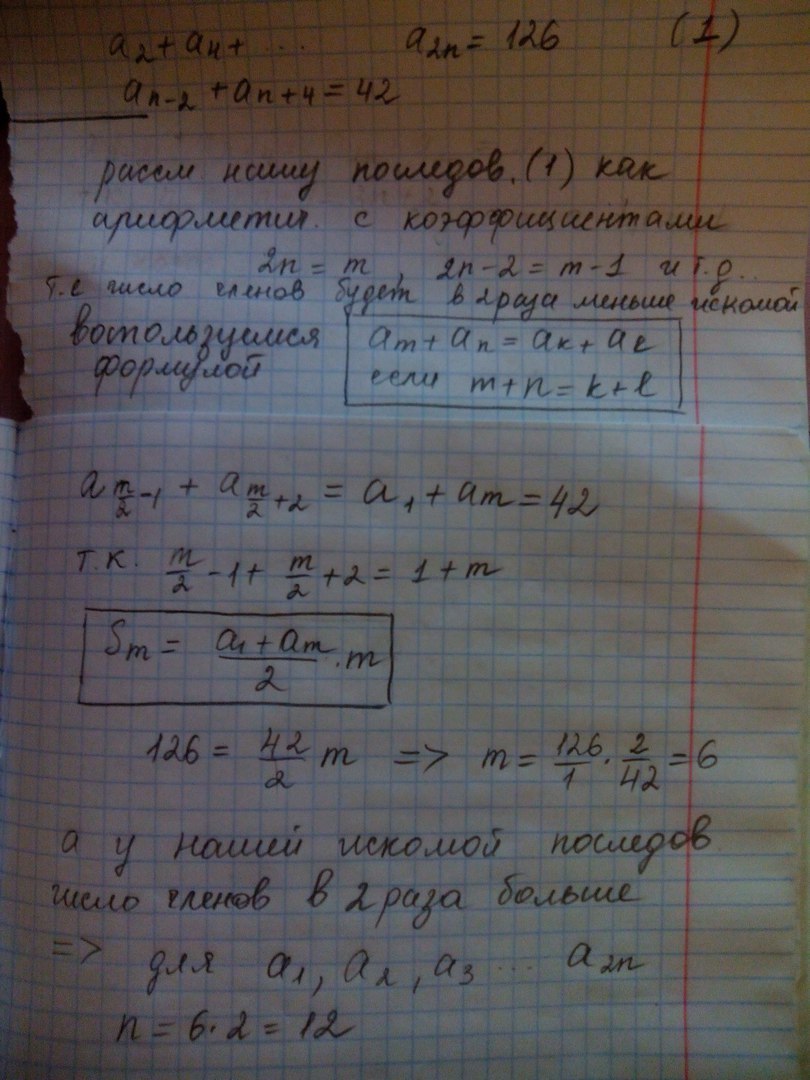 a₂ + a₄ + ... a₂ₙ = 126 (1)
aₙ₋₂ + aₙ₊₄ = 42
рассм нашу последов. (1) как
арифметич. с коэффициентами
2n = m, 2n-2 = m-1 и т.д..
т.е число членов будет в 2 раза меньше искомой
воспользуемся
формулой
aₘ + aₙ = aₖ + aₗ
если m+n = k+l
a_{m/2 -1} + a_{m/2 +2} = a₁ + aₘ = 42
т.к. m/2 - 1 + m/2 + 2 = 1 + m
Sₘ = (a₁ + aₘ)/2 · m
126 = 42/2 m => m = 126/1 · 2/42 = 6
а у нашей искомой последов
число членов в 2 раза больше
=> для a₁, a₂, a₃ ... a₂ₙ
n = 6·2 = 12